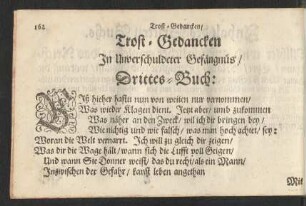 162 Trost-Gedancken/
Trost-Gedancken
In Unverschuldeter Gefängnüs/
Drittes-Buch:
Biß hieher hastu nun von weiten nur vernommen/
Was wieder Klagen dient. Jetzt aber/ umb zukommen
Was näher an den Zweck/ wil ich dir bringen bey/
Wie nichtig und wie falsch/ was man hoch achtet/ sey:
Woran die Welt vernarrt. Ich will zu gleich dir zeigen/
Was dir die Wage hält/ wann sich die Lüffte voll Geigen/
Und wann Sie Donner weist/ das du recht/als ein Mann/
Inzwischen der Gefahr/ kanst leben angethan
Mit